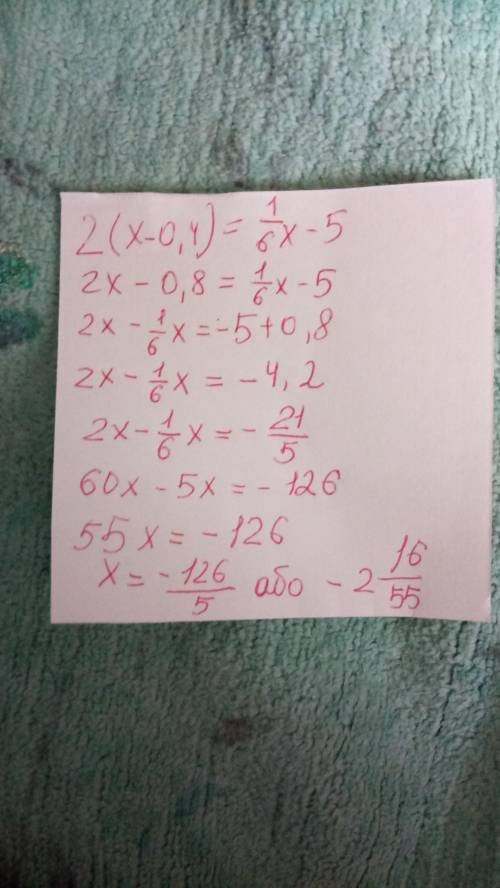 2(x-0,4) = 1/6 x - 5
2x - 0,8 = 1/6 x - 5
2x - 1/6 x = -5 + 0,8
2x - 1/6 x = - 4,2
2x - 1/6 x = - 21/5
60x - 5x = - 126
55x = - 126
x = -126/5 або - 2 16/55